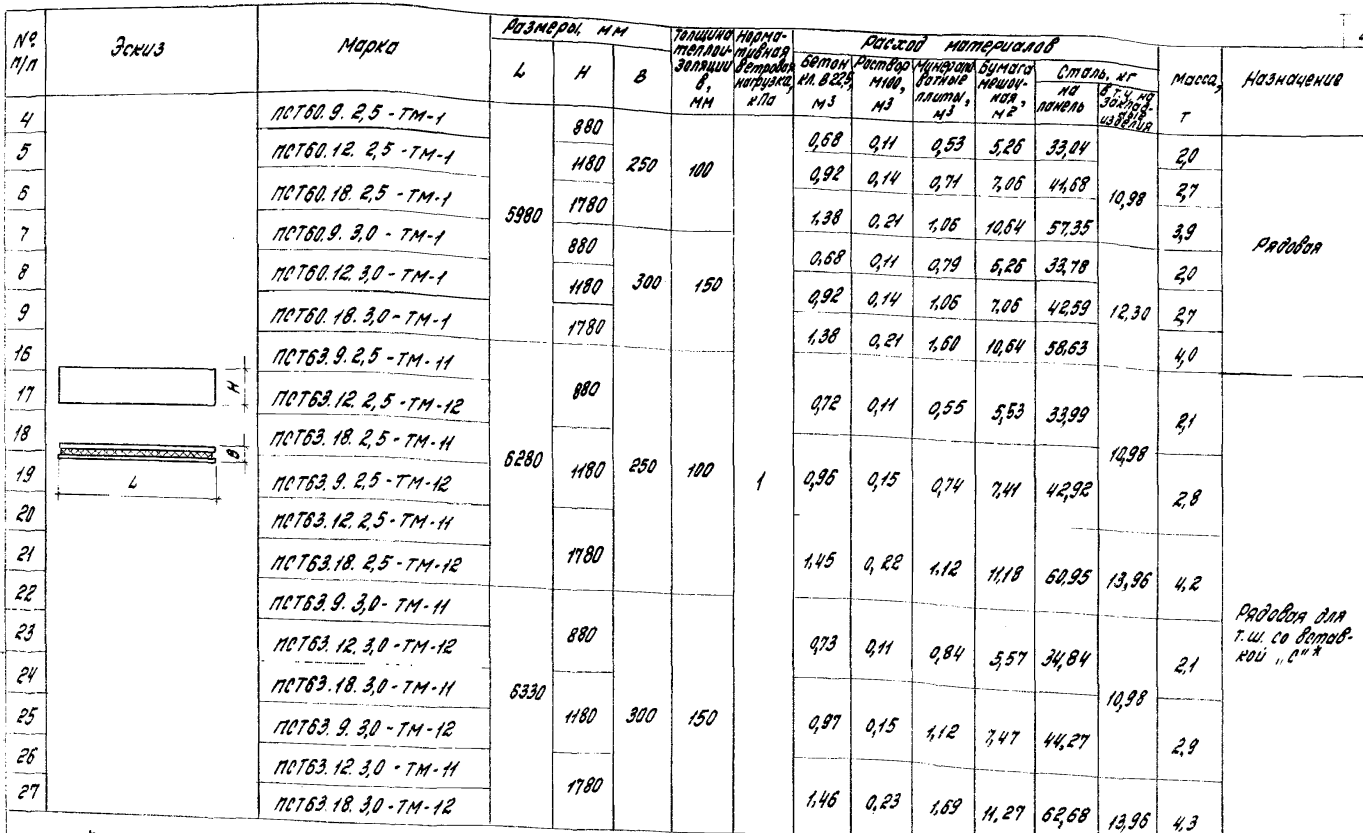 № п/п Эскиз Марка Размеры, мм Толщина теплоизоляции δ, мм Нормативная ветровая нагрузка, кПа Расход материалов Масса, т Назначение
L H B Бетон кл. В 22,5, м³ Раствор М100, м³ Минераловатные плиты, м³ Бумага мешочная, м² Сталь, кг
на панель в т.ч. на закладные изделия
4 ПСТ60.9.2,5-ТМ-1 5980 880 250 100 1 0,68 0,11 0,53 5,26 33,04 10,98 2,0 Рядовая
5 ПСТ60.12.2,5-ТМ-1 1180 0,92 0,14 0,71 7,06 41,68 2,7
6 ПСТ60.18.2,5-ТМ-1 1780 1,38 0,21 1,06 10,64 57,35 3,9
7 ПСТ60.9.3,0-ТМ-1 880 300 150 0,68 0,11 0,79 5,26 33,78 12,30 2,0
8 ПСТ60.12.3,0-ТМ-1 1180 0,92 0,14 1,06 7,06 42,59 2,7
9 ПСТ60.18.3,0-ТМ-1 1780 1,38 0,21 1,60 10,64 58,63 4,0
16 ПСТ63.9.2,5-ТМ-11 6280 880 250 100 0,72 0,11 0,55 5,53 33,99 10,98 2,1 Рядовая для т.ш. со вставкой „С"*
17 ПСТ63.12.2,5-ТМ-12
18 ПСТ63.18.2,5-ТМ-11 1180 0,96 0,15 0,74 7,41 42,92 2,8
19 ПСТ63.9.2,5-ТМ-12
20 ПСТ63.12.2,5-ТМ-11 1780 1,45 0,22 1,12 11,18 60,95 13,96 4,2
21 ПСТ63.18.2,5-ТМ-12
22 ПСТ63.9.3,0-ТМ-11 6330 880 300 150 0,73 0,11 0,84 5,57 34,84 10,98 2,1
23 ПСТ63.12.3,0-ТМ-12
24 ПСТ63.18.3,0-ТМ-11 1180 0,97 0,15 1,12 7,47 44,27 2,9
25 ПСТ63.9.3,0-ТМ-12
26 ПСТ63.12.3,0-ТМ-11 1780 1,46 0,23 1,69 11,27 62,68 13,96 4,3
27 ПСТ63.18.3,0-ТМ-12
H
B
L